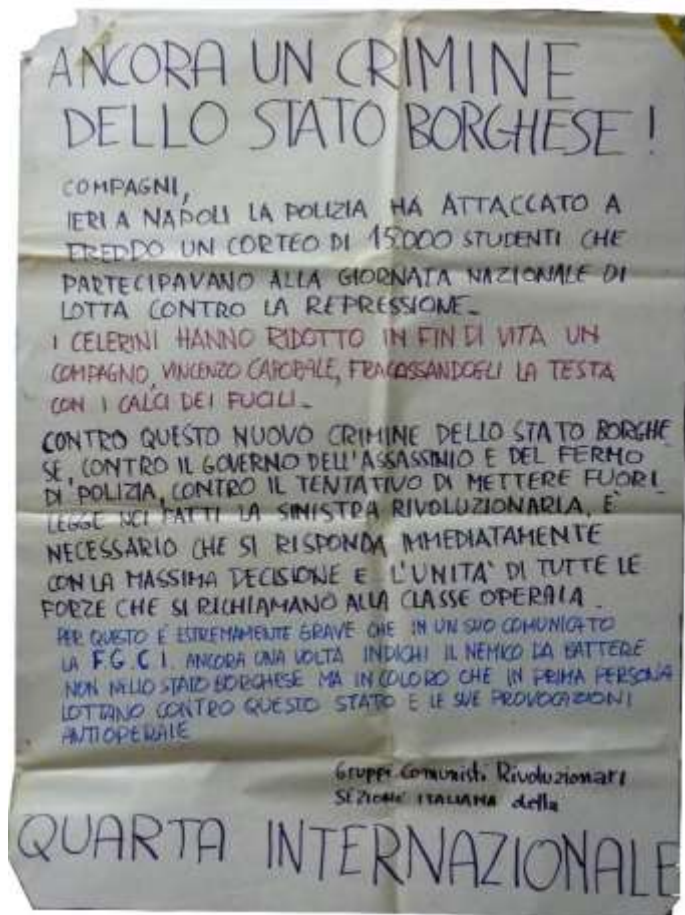 ANCORA UN CRIMINE
DELLO STATO BORGHESE !
COMPAGNI,
IERI A NAPOLI LA POLIZIA HA ATTACCATO A
FREDDO UN CORTEO DI 15000 STUDENTI CHE
PARTECIPAVANO ALLA GIORNATA NAZIONALE DI
LOTTA CONTRO LA REPRESSIONE.
I CELERINI HANNO RIDOTTO IN FIN DI VITA UN
COMPAGNO, VINCENZO CAPORALE, FRACASSANDOGLI LA TESTA
CON I CALCI DEI FUCILI.
CONTRO QUESTO NUOVO CRIMINE DELLO STATO BORGHE
SE, CONTRO IL GOVERNO DELL'ASSASSINIO E DEL FERMO
DI POLIZIA, CONTRO IL TENTATIVO DI METTERE FUORI
LEGGE NEI FATTI LA SINISTRA RIVOLUZIONARIA, È
NECESSARIO CHE SI RISPONDA IMMEDIATAMENTE
CON LA MASSIMA DECISIONE E L'UNITA' DI TUTTE LE
FORZE CHE SI RICHIAMANO ALLA CLASSE OPERAIA.
PER QUESTO È ESTREMAMENTE GRAVE CHE IN UN SUO COMUNICATO
LA F.G.C.I. ANCORA UNA VOLTA INDICHI IL NEMICO DA BATTERE
NON NELLO STATO BORGHESE MA IN COLORO CHE IN PRIMA PERSONA
LOTTANO CONTRO QUESTO STATO E LE SUE PROVOCAZIONI
ANTIOPERAIE
Gruppi Comunisti Rivoluzionari
SEZIONE ITALIANA della
QUARTA INTERNAZIONALE